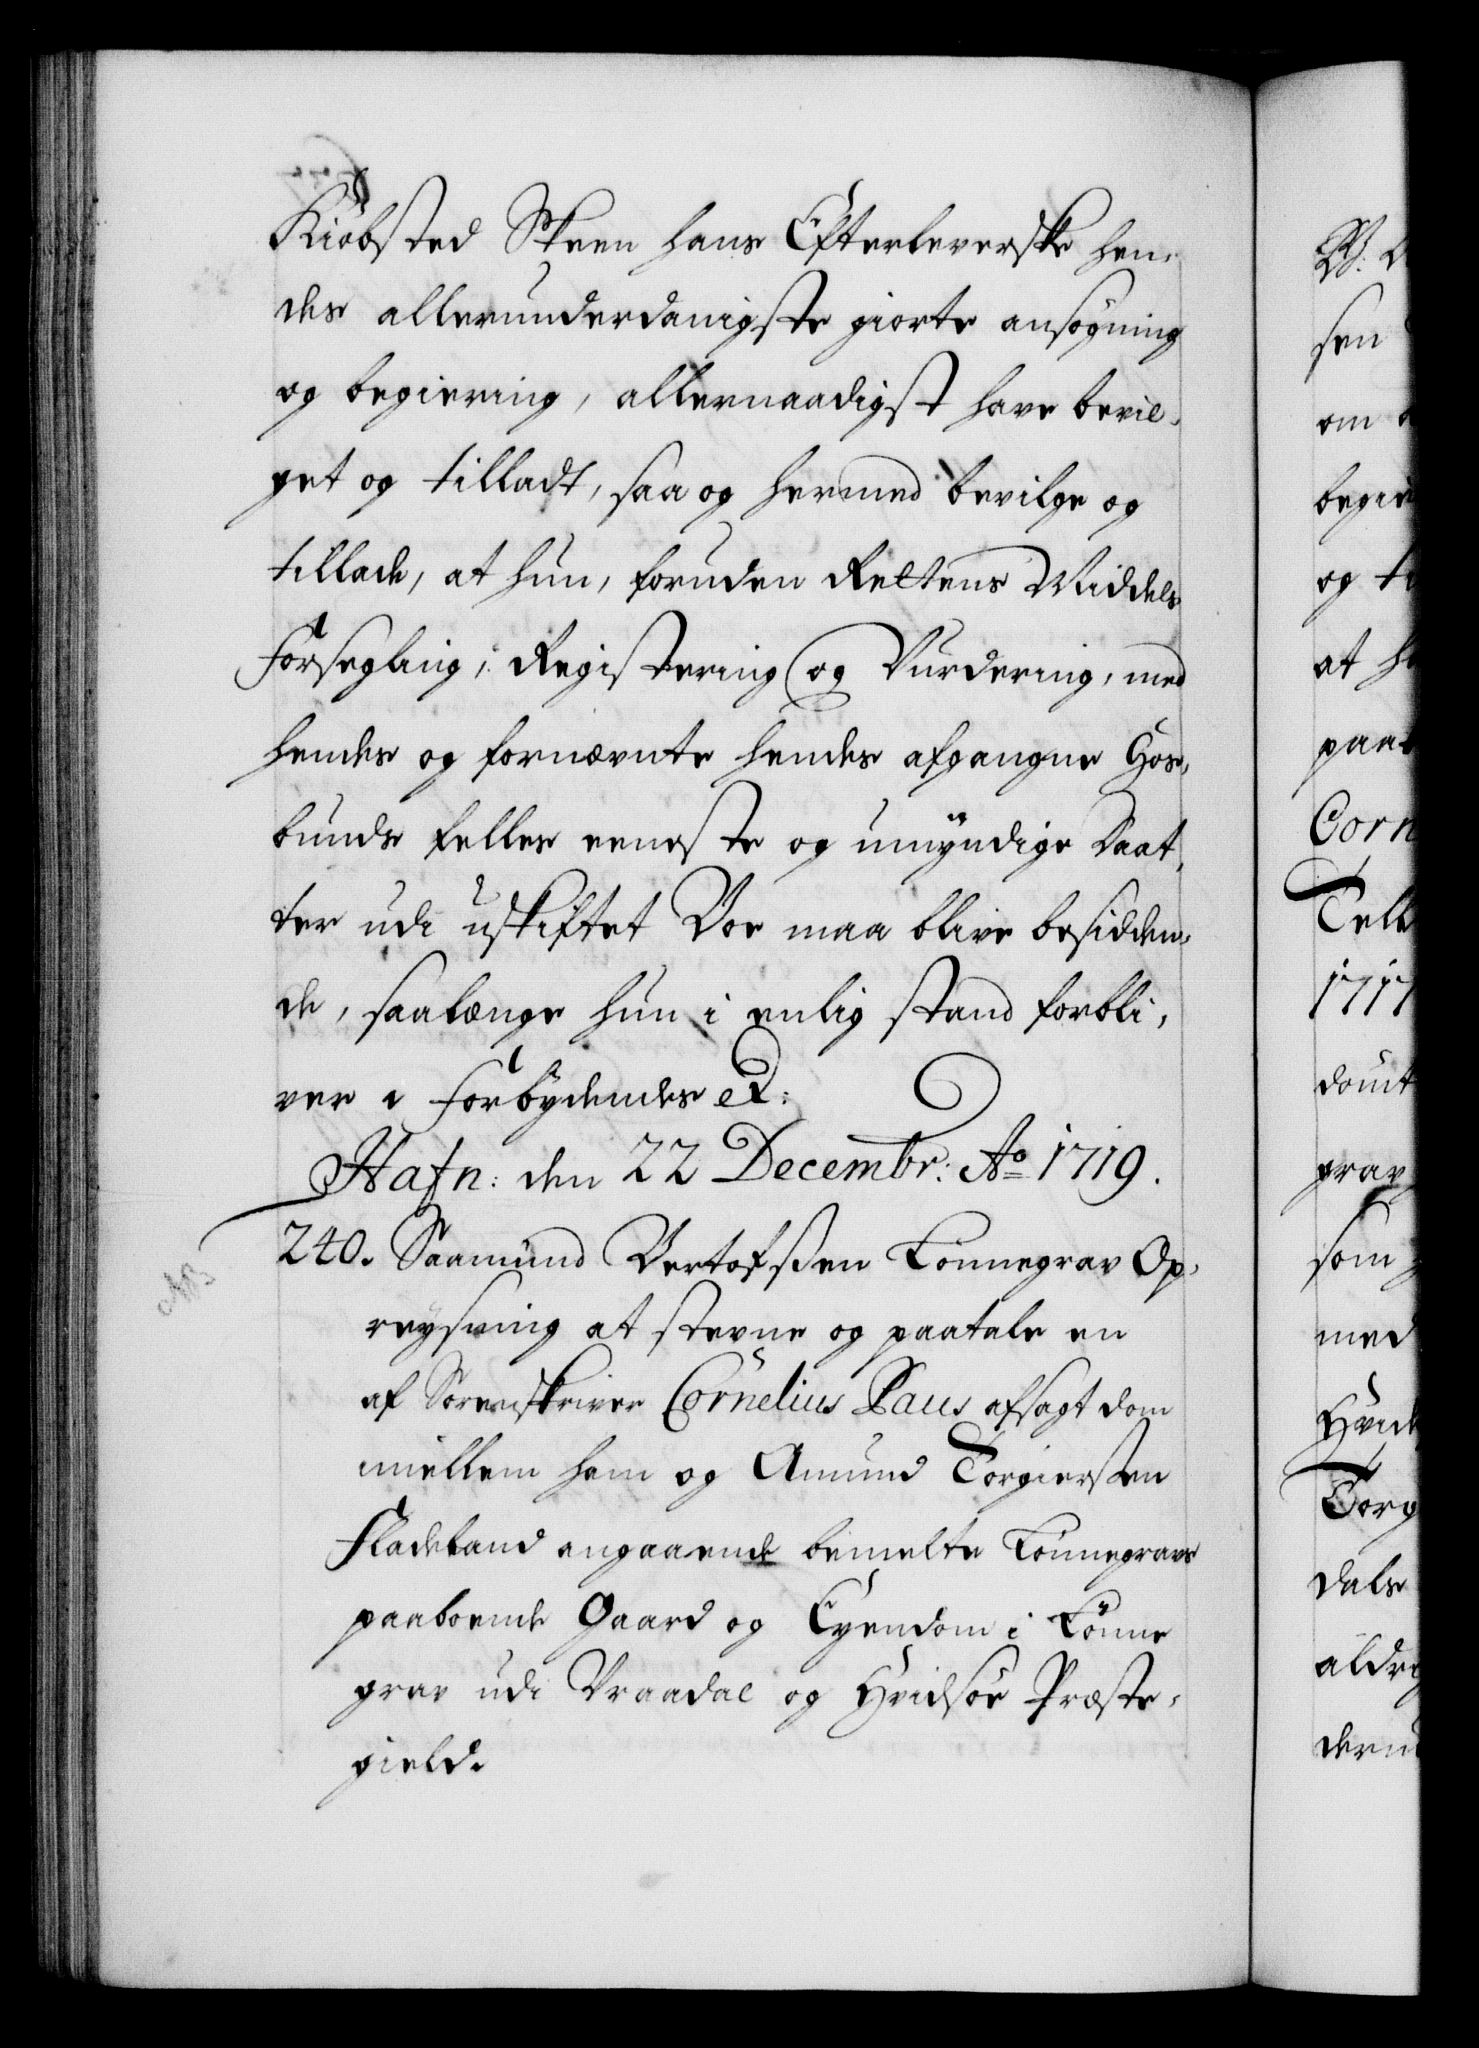 Kiöbsted Skeen hans Efterleverske hen-
des allerunderdanigste giorte ansögning
og begiering, allernaadigst have bevil-
get og tilladt, saa og hermed bevilge og
tillade, at hun, foruden Rettens Middels
Forsegling, Registering og Vurdering, med
hendes og fornævnte hendes afgangne Hos-
bunds felles eeneste og umyndige Daat-
ter udi uskiftet Boe maa blive besidden-
de, saalænge hun i enlig stand forbli-
ver. Forbydendes &:
Hafn: den 22 Decembr: Ao 1719.
240. Saamund Vertofssen Tönnegrav Op-
reysning at stevne og paatale en
af Sorenskriver Cornelius Paus afsagt dom
imellem ham og Amund Torgiersen
Fladeland angaaende bemelte Tönnegravs
paaboende Gaard og Eyendom i Tönne
grav udi Vraadal og Hvidsöe Præste-
gield.
sen
om
begie
og ti
at h
paat
Corn
Tell
1717
domt
grav
som
med
Hvid
Torg
dals
aldri